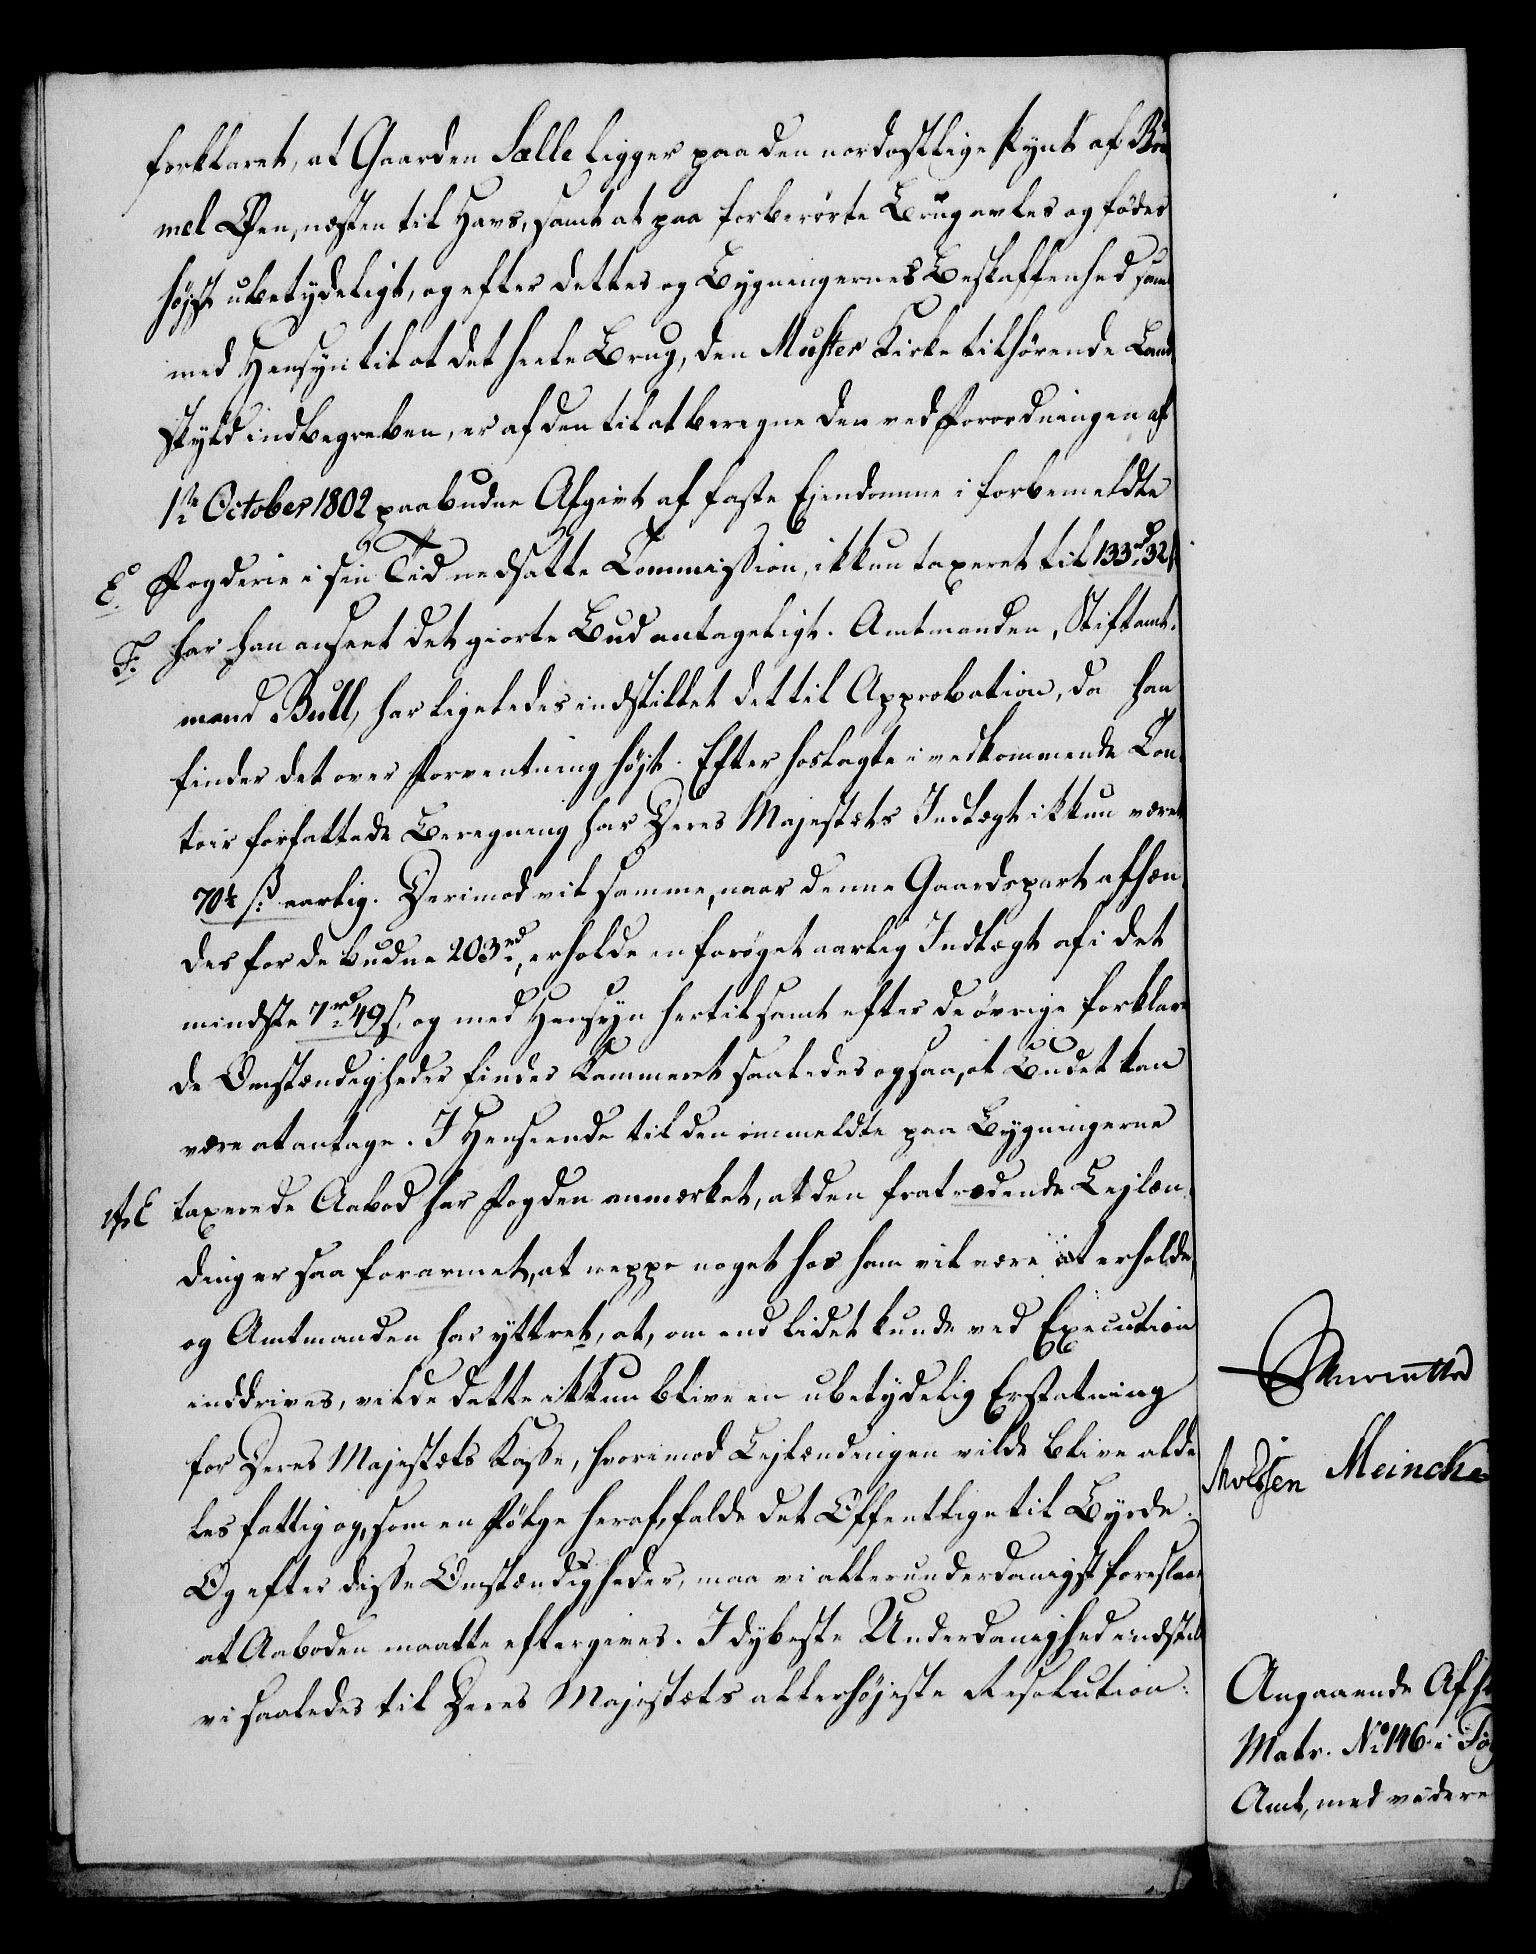 forklaret, at Gaarden Sælle ligger paa den nordostlige Pynt af Böm
mel Øen, næsten til Havs, samt at paa forberørte Brug avles og födes
högst ubetydeligt, og efter dettes og Bygningernes Beskaffenhed samt
med Hensyn til at det heele Brug, den Muster Kirke tilhørende Land
skyld indbegreben, er af den til at beregne den ved Forordningen af
1te October 1802 paabudne Afgivt af faste Ejendomme i forbemeldte
E. Fogderie i sin Tid nedsatte Commission, ikkun taxeret til 133rd 32s
F. har han anseet det giorte Bud antageligt. Amtmanden, Stiftamt-
mand Bull, har ligeledes indstillet det til Approbation, da han
finder det over Forventning højt. Efter hoslagte i vedkommende Con-
toir forfattede Beregning har Deres Majestæts Indtægt ikkun været
70½ s: aarlig. Derimod vil samme, naar denne Gaardspart afhæn-
des for de budne 203rd, erholde en forøget aarlig Indtægt af i det
mindste 7rd 49s, og med Hensyn hertil samt efter de øvrige forklare
de Omstændigheder finder Kammeret saaledes ogsaa, at Budet kan
være at antage. I Henseende til den ommeldte paa Bygningerne
E taxerede Aabod har Fogden anmærket, at den fratrædende Lejlæn-
ding er saa forarmet, at neppe noget hos ham vil være at erholde,
og Amtmanden har yttret, at, om end lidet kunde ved Execution
inddrives, vilde dette ikkun blive en ubetydelig Erstatning
for Deres Majestæts Kasse, hvorimod Lejlændingen vilde blive alde
les fattig og, som en Følge heraf, falde det Offentlige til Byrde.
Og efter disse Omstændigheder, maa vi allerunderdanigst foreslaae
at Aaboden maatte eftergives. I dybeste Underdanighed indstil
vi saaledes til Deres Majestæts allerhøjeste Resolution:
Meincke
Angaaende Afh
Matr. No 146 i
Amt, med videre